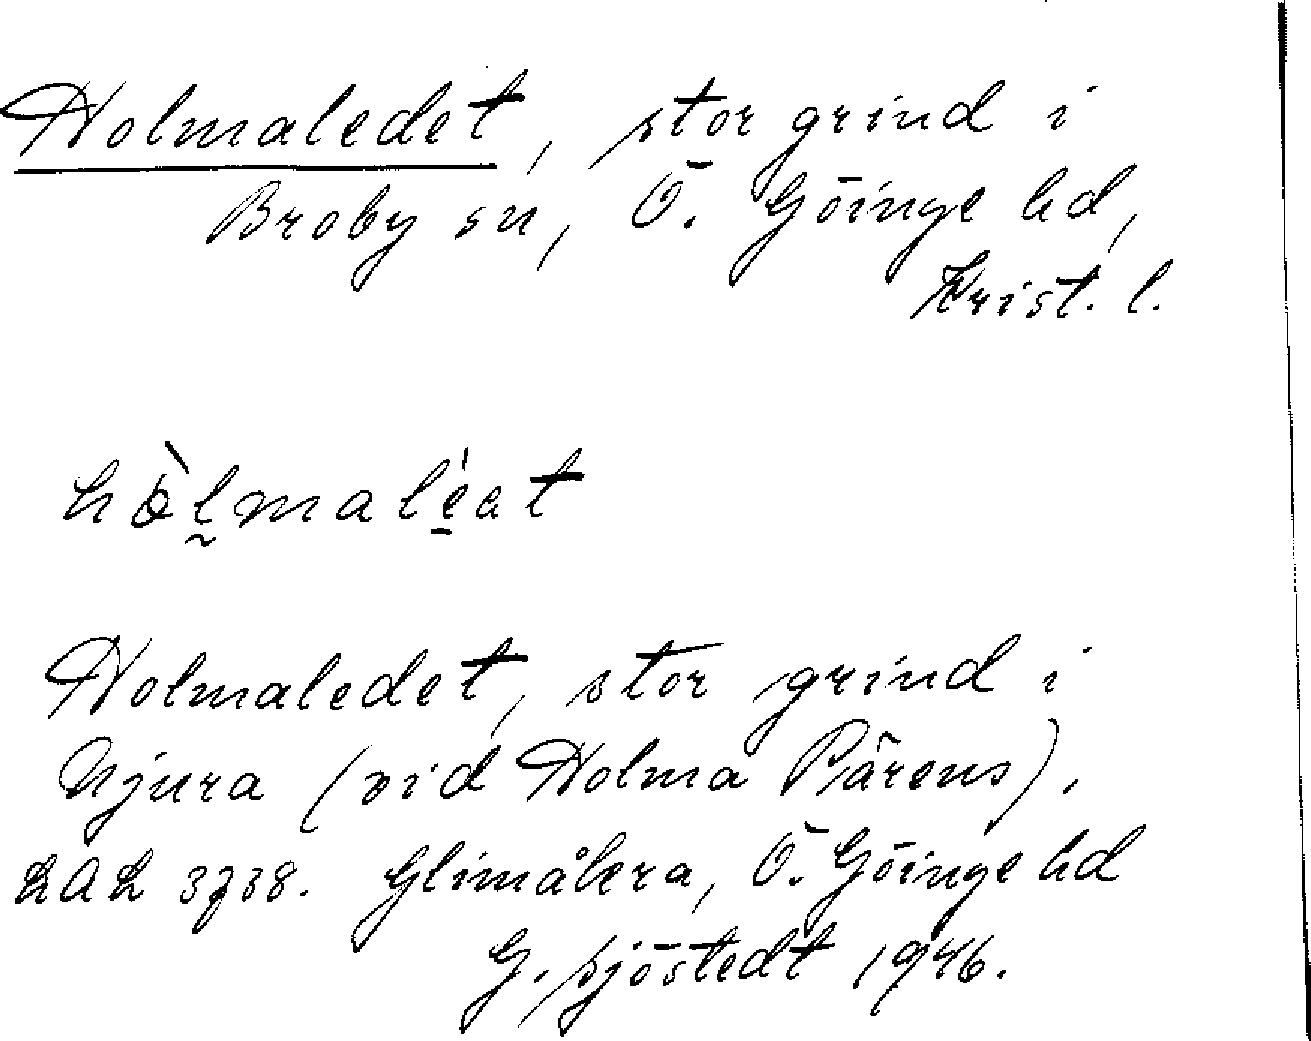 Holmaledet, stor grind i
Broby sn, Ö. Göinge hd,
Krist. l.
hòlmaléat
Holmaledet, stor grind i
hjura (vid Holma Pärens).
LAL 3738. Glimåkra, Ö. Göinge hd
G. Sjöstedt 1946.